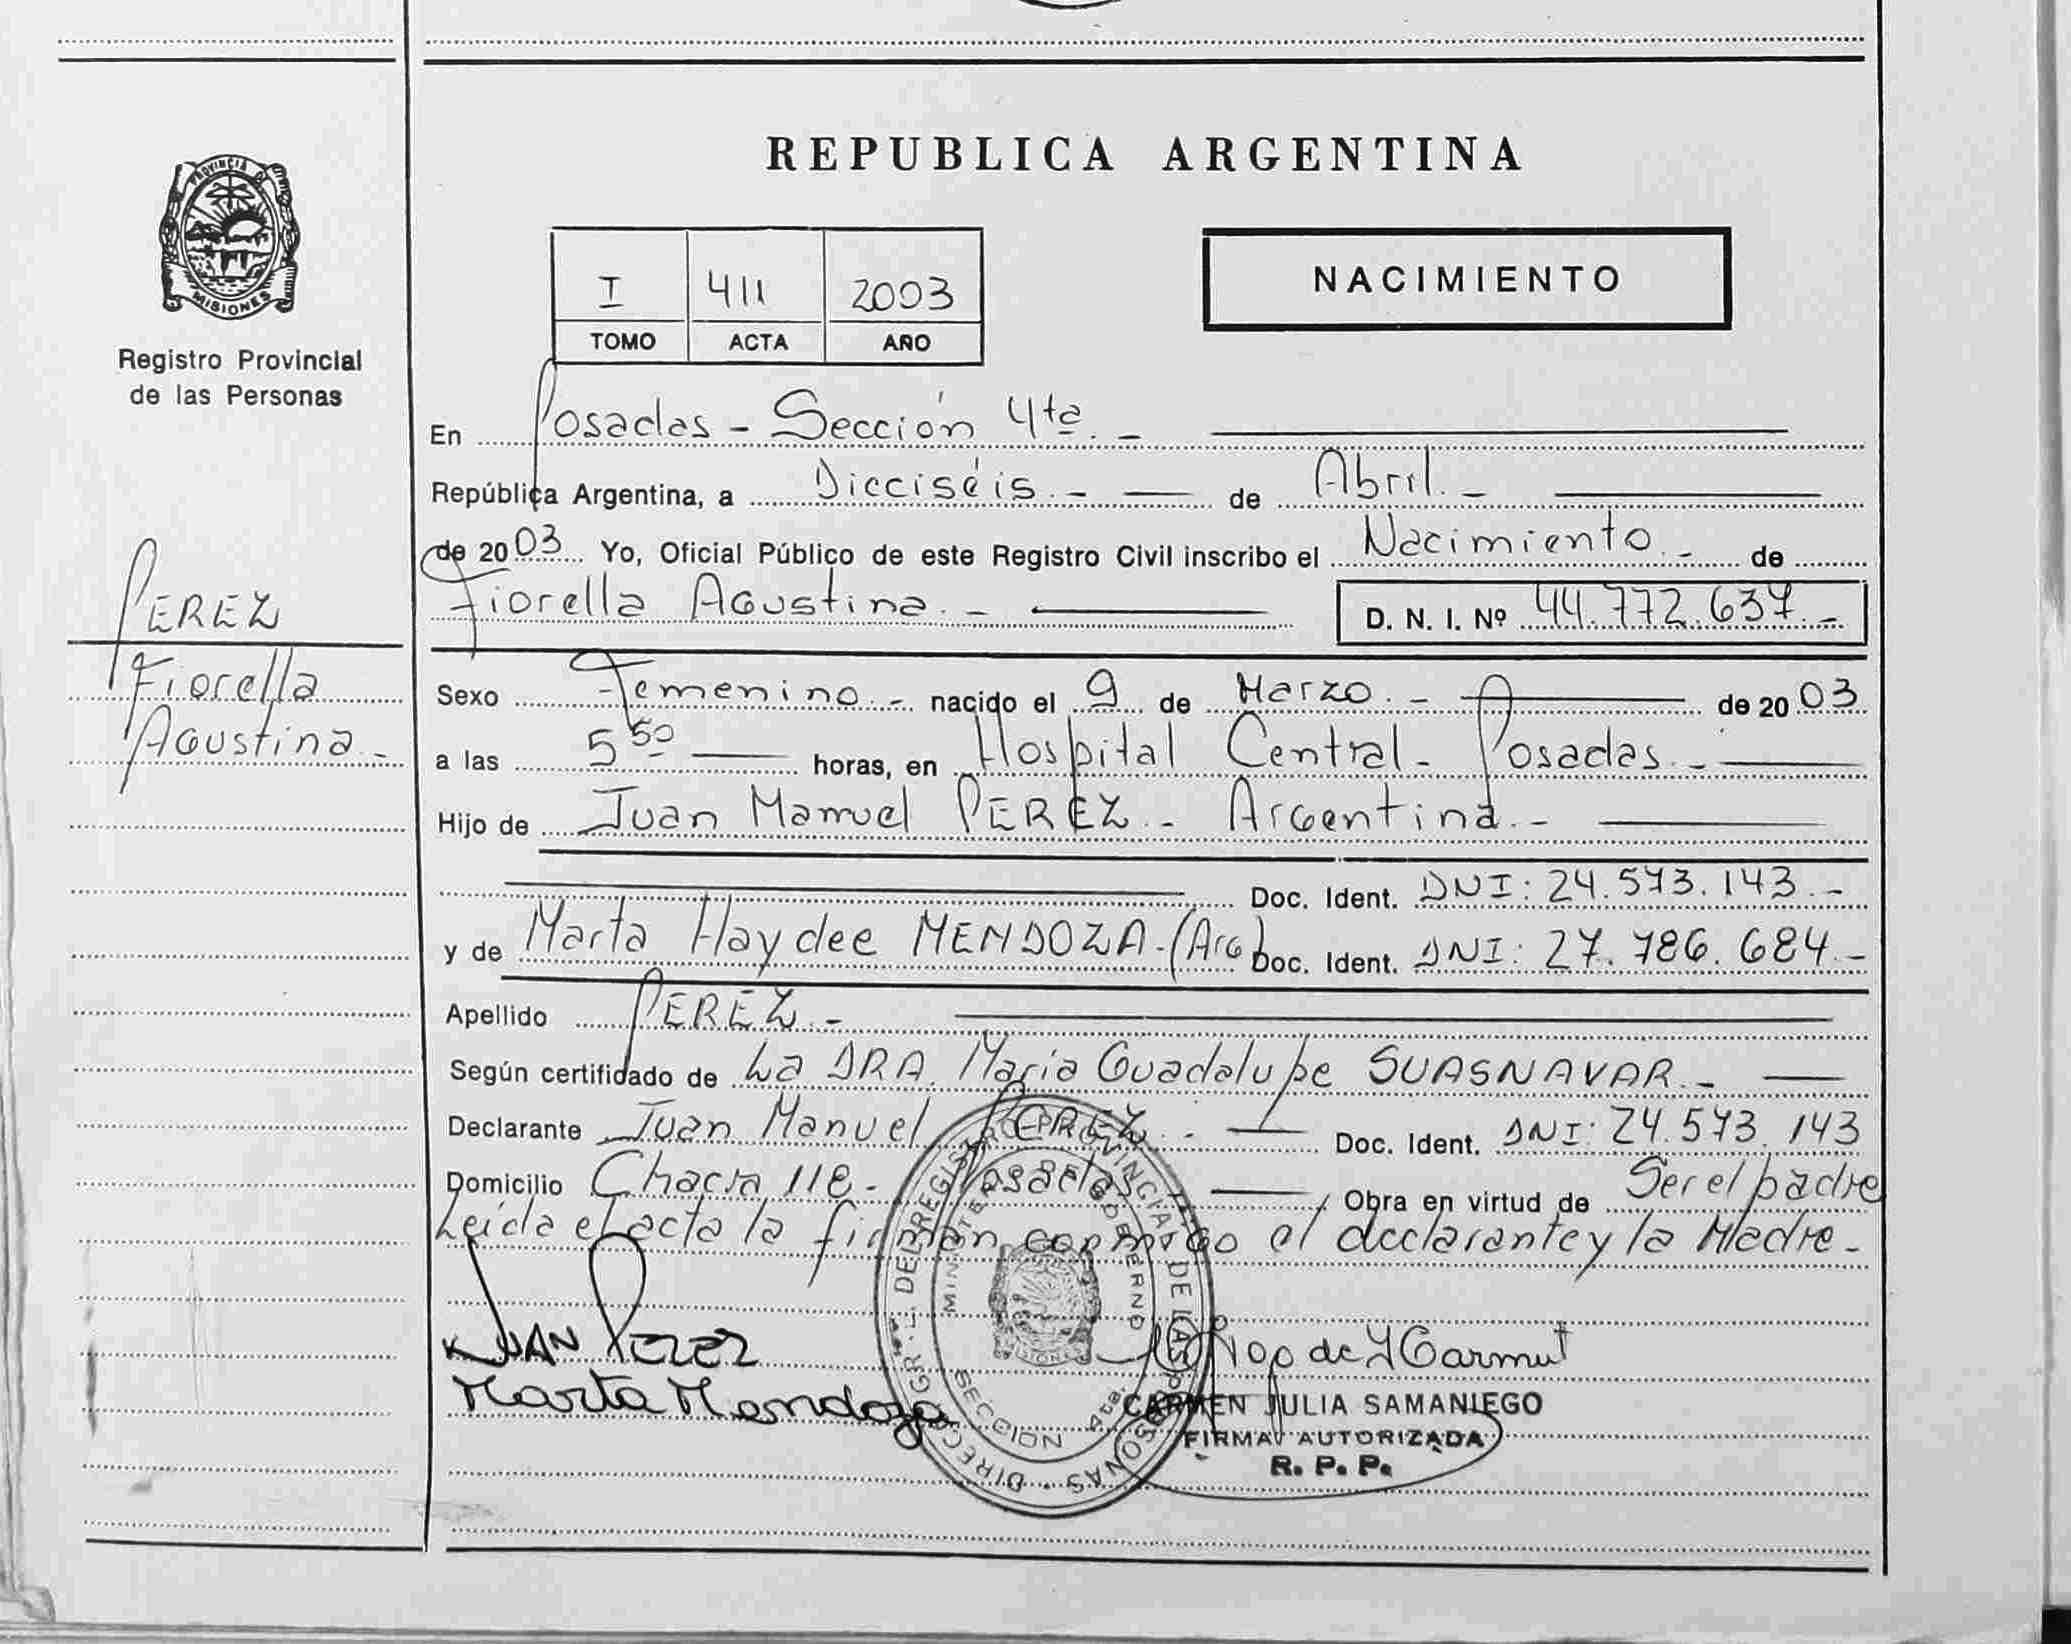 PROVINCIA DE
MISIONES
Registro Provincial
de las Personas
PEREZ
Fiorella
Agustina.-
REPUBLICA ARGENTINA
I 411 2003
TOMO ACTA AÑO
NACIMIENTO
En Posadas - Sección 4ta.-
República Argentina, a Dieciséis.- de Abril.-
de 2003 Yo, Oficial Público de este Registro Civil inscribo el Nacimiento.- de
Fiorella Agustina.- D. N. I. Nº 44.772.637.-
Sexo Femenino.- nacido el 9 de Marzo.- de 2003
a las 5 50 horas, en Hospital Central- Posadas.-
Hijo de Juan Manuel PEREZ.- Argentina.-
Doc. Ident. DNI: 24.573.143.-
y de Marta Haydee MENDOZA.-(Arg) Doc. Ident. DNI: 27.786.684.-
Apellido PEREZ.-
Según certificado de La DRA. María Guadalupe SUASNAVAR.-
Declarante Juan Manuel PEREZ.- Doc. Ident. DNI: 24.573.143
Domicilio Chacra 118- Posadas Obra en virtud de Ser el padre
Leída el acta la firman conmigo el declarante y la Madre.-
JUAN PEREZ
Marta Mendoza
DIRECC. GR. L. DEL REGISTRO PROVINCIAL DE LAS PERSONAS
SECCION 4ta.
MISIONES
CARMEN JULIA SAMANIEGO
FIRMA AUTORIZADA
R. P. P.